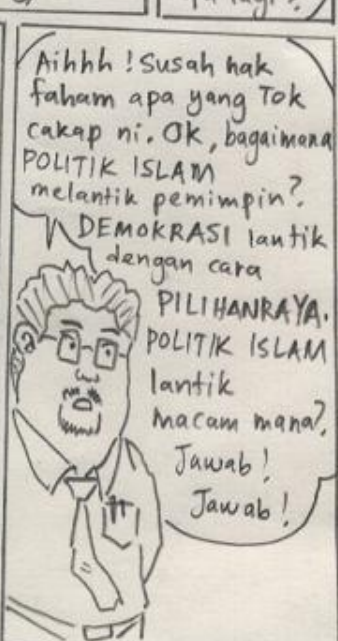 Aihhh ! Susah nak
faham apa yang Tok
cakap ni. Ok, bagaimana
POLITIK ISLAM
melantik pemimpin?
DEMOKRASI lantik
dengan cara
PILIHANRAYA.
POLITIK ISLAM
lantik
macam mana?
Jawab!
Jawab!